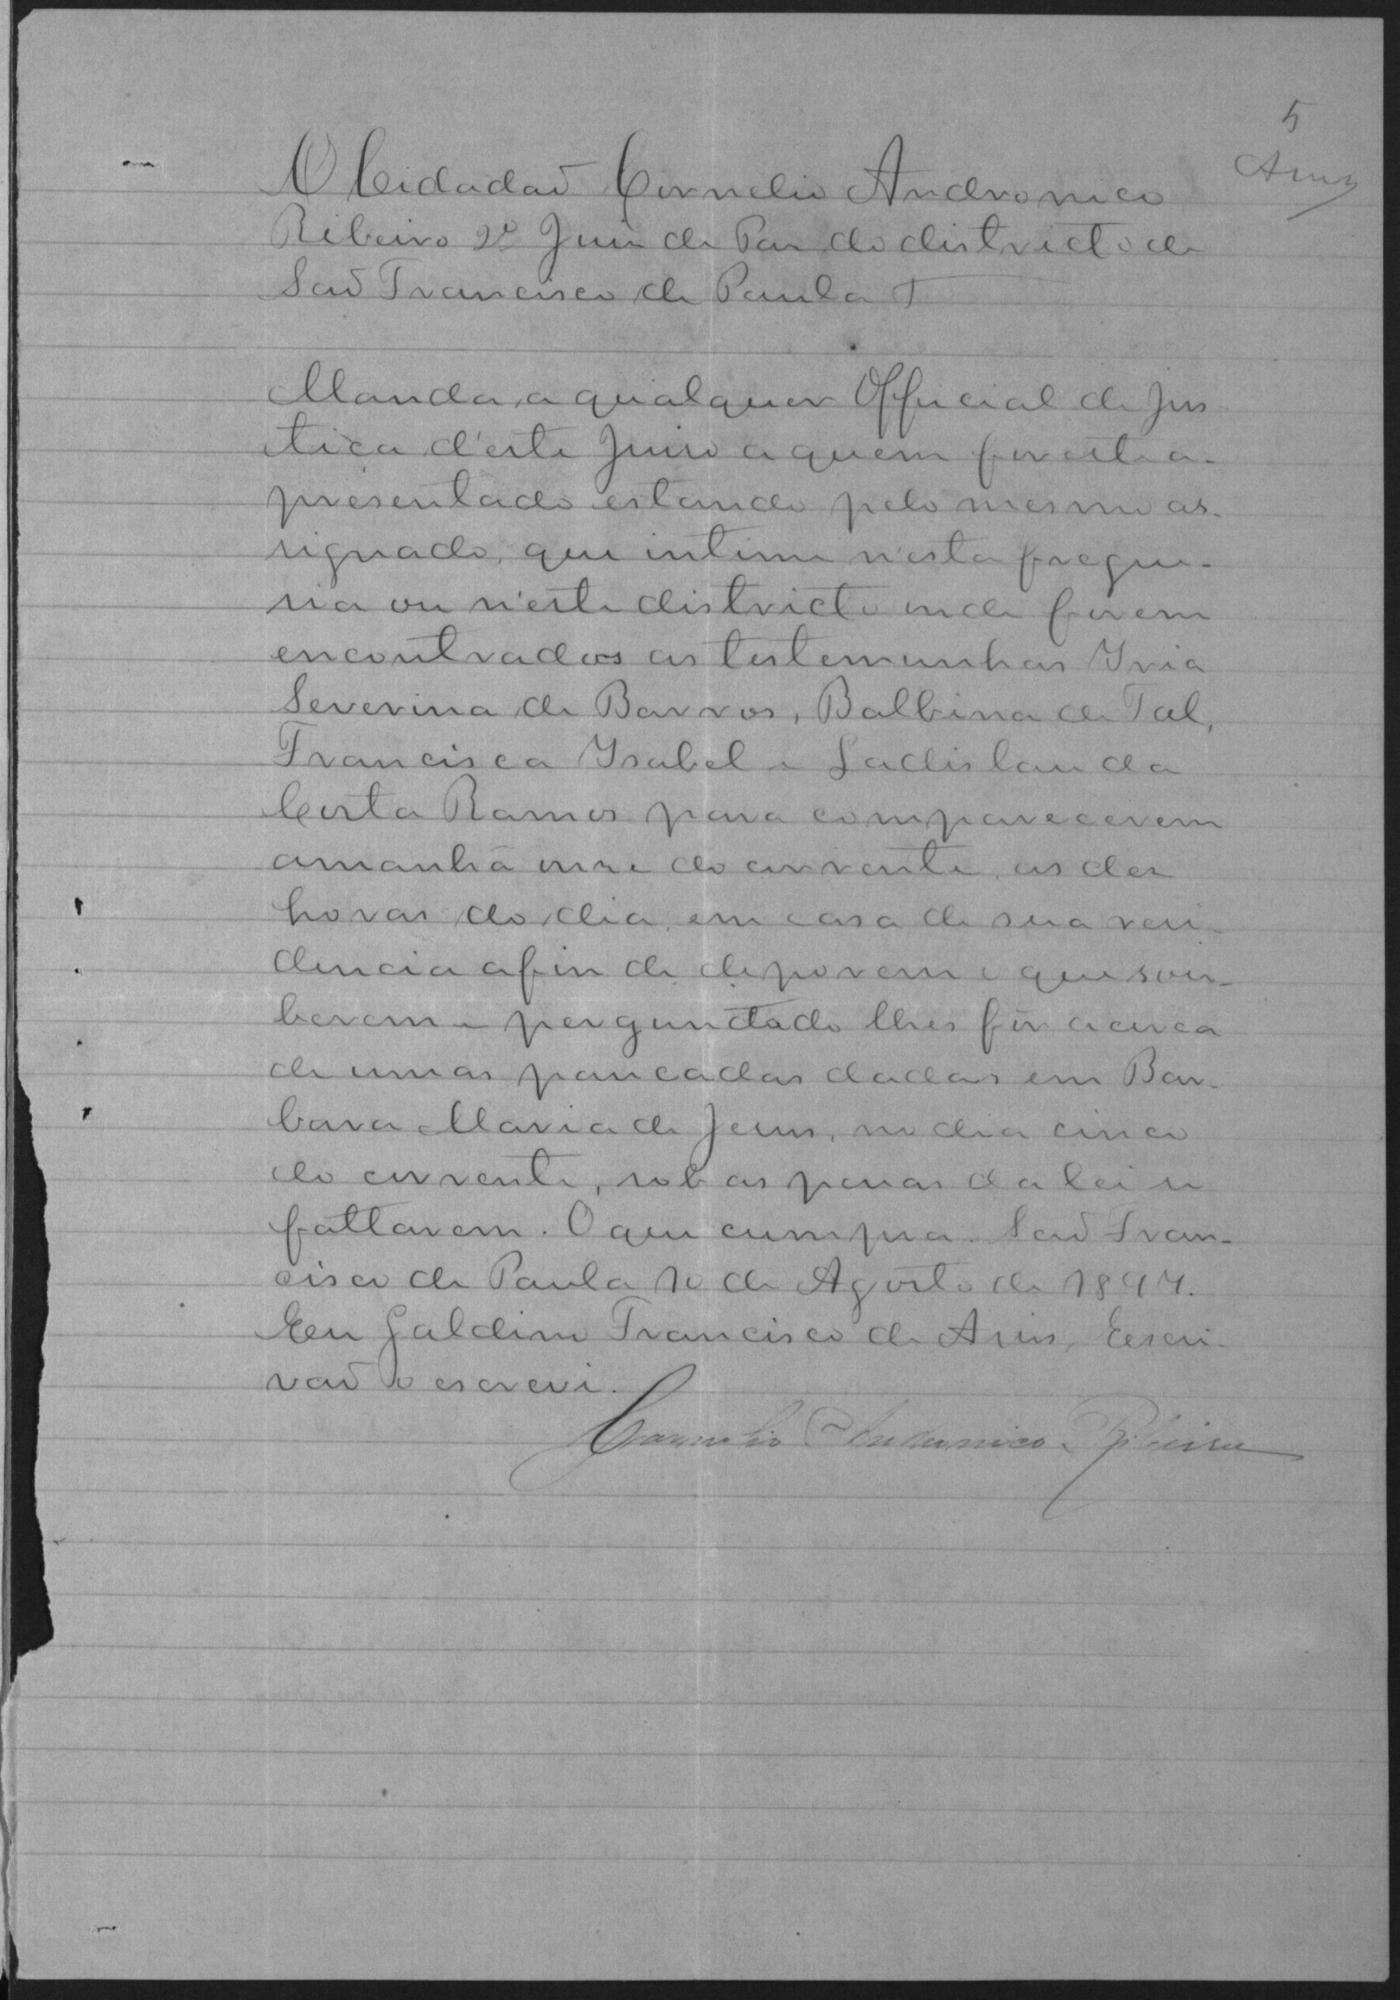 5
Assis
O Cidadaõ Cornelio Andronico
Ribeiro 2º Juis de Pas do districto de
Saõ Francisco de Paula
Manda, a qualquer Official de Jus
tiça d'este Juiso a quem for este a-
presentado estando pelo mesmo as-
signado, que intime n'esta fregue-
sia ou n'este districto onde forem
encontrados as testemunhas Yria
Severina de Barros, Balbina de Tal,
Francisca Ysabel e Ladislau da
Costa Ramos para comparecerem
amanhã onze do corrente, as dez
horas do dia, em casa de sua resi-
dencia afin de deporem o que sou-
berem e perguntado lhes fôr acerca
de umas pancadas dadas em Bar-
bara Maria de Jesus, no dia cinco
do corrente, sob as penas da lei se
faltarem. O que cumpra. Saõ Fran-
cisco de Paula 10 de Agosto de 1894.
Eu Galdino Francisco de Assis, Escri-
vaõ o escrevi.
Cornelio Andronico Ribeiro